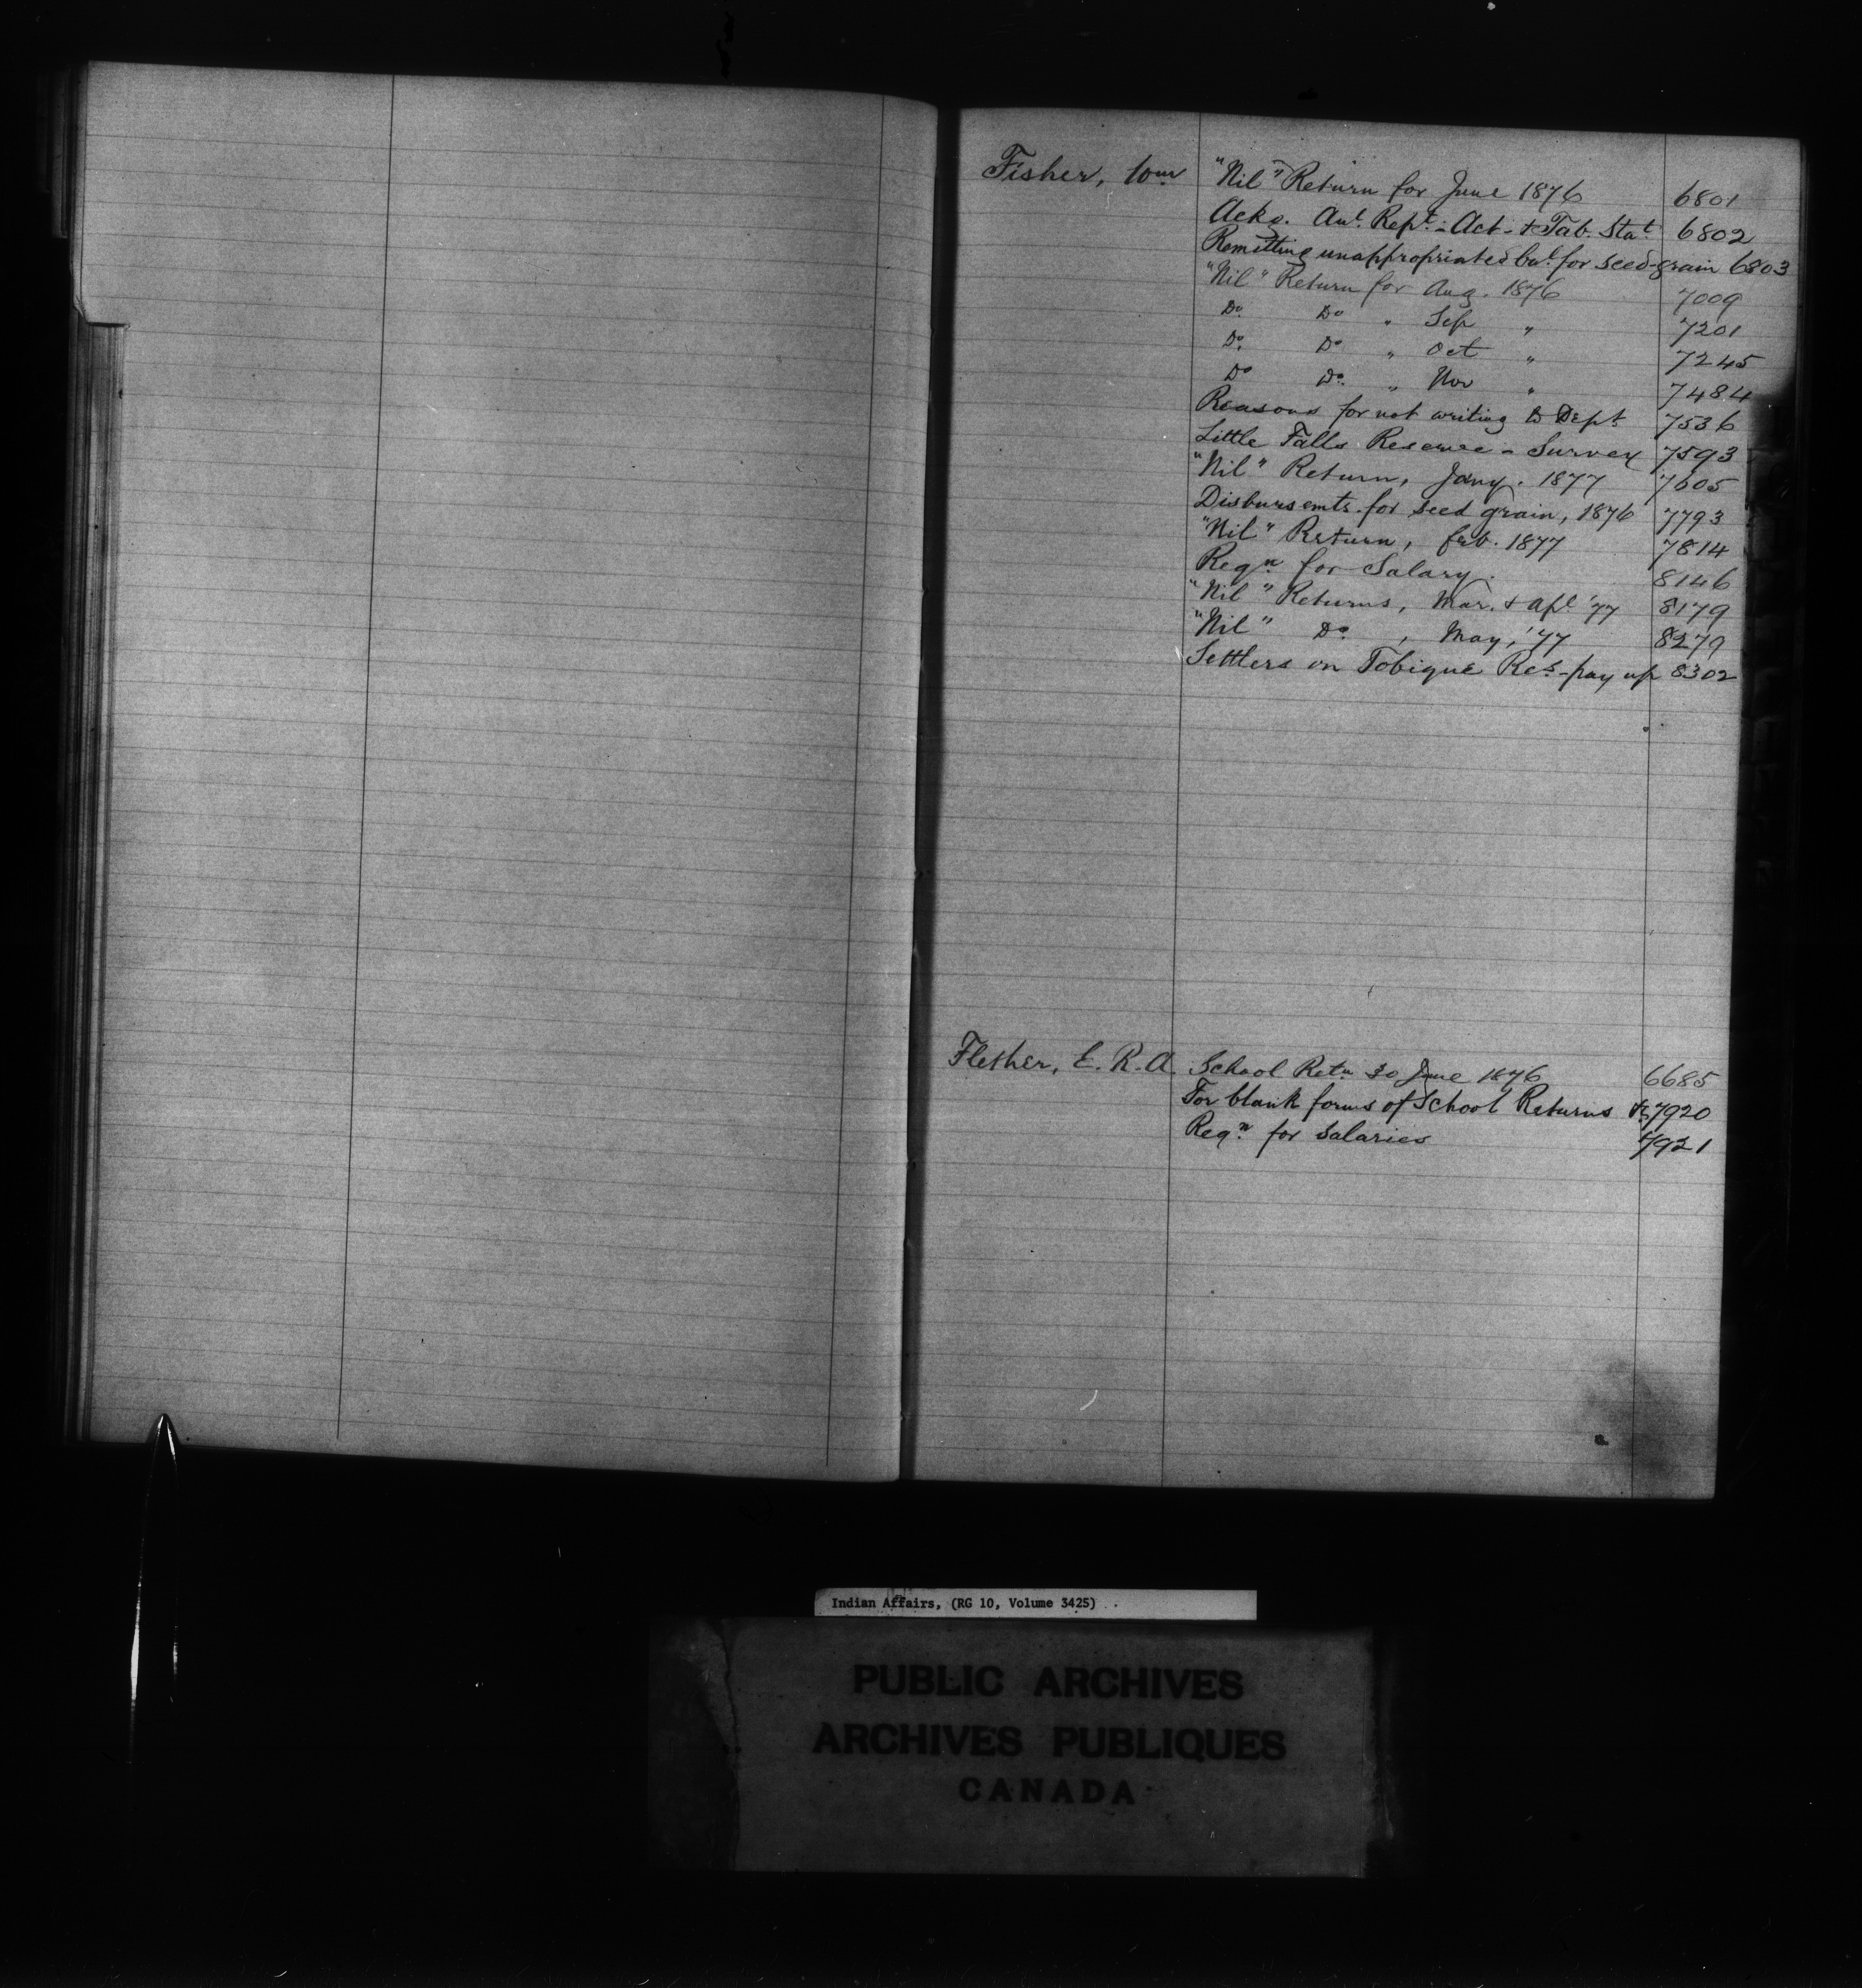 Fisher, Wm "Nil" Return for June 1876 6801
Ackg. Anl Rept - Act - & Tab. Stat 6802
Remitting unappropriated bal. for seed-grain 6803
"Nil" Return for Aug. 1876 7009
Do Do " Sep " 7201
Do Do " Oct " 7245
Do Do " Nov " 7484
Reasons for not writing to Dept 7536
Little Falls Reserve - Survey 7593
"Nil" Return, Jany. 1877 7605
Disbursemts. for seed grain, 1876 7793
"Nil" Return, feb. 1877 7814
Reqn for Salary. 8146
"Nil" Returns, Mar. & Apl '77 8179
"Nil" Do , May, '77 8279
Settlers on Tobique Res - pay up 8302
Flether, E. R. A. School Retn 30 June 1876 6685
For blank forms of School Returns &c 7920
Reqn for salaries 7921
Indian Affairs, (RG 10, Volume 3425)
PUBLIC ARCHIVES
ARCHIVES PUBLIQUES
CANADA